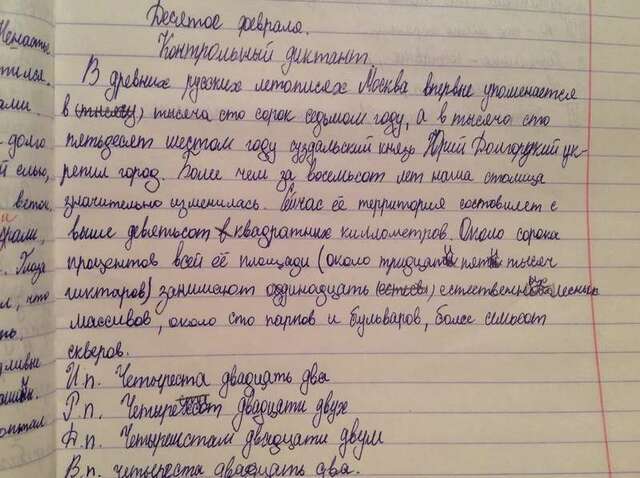 Десятое февраля.
Контрольный диктант.
В древних русских летописях Москва впервые упоминается
в (тысячу) тысяча сто сорок седьмом году, а в тысяча сто
пятьдесят шестом году суздальский князь Юрий Долгорукий ук-
репил город. Более чем за восемьсот лет наша столица
значительно изменилась. Сйчас её территория состовляет с
выше девятьсот квадратных киллометров. Около сорока
процентов всей её площади (около тридцати пяти тысяч
гиктаров) занимают одинадцать естественных лесных
массивов, около сто парков и бульваров, более семьсот
скверов.
И.п. Четыреста двадцать два
Р.п. Четырехсот двадцати двух
Д.п. Четыремстам двадцати двум
В.п. четыреста двадцать два.
Ненасть
тился.
ами.
долго
й елью,
веток.
а
рами,
. Глаза
л, что
ть.
дливы
опытал